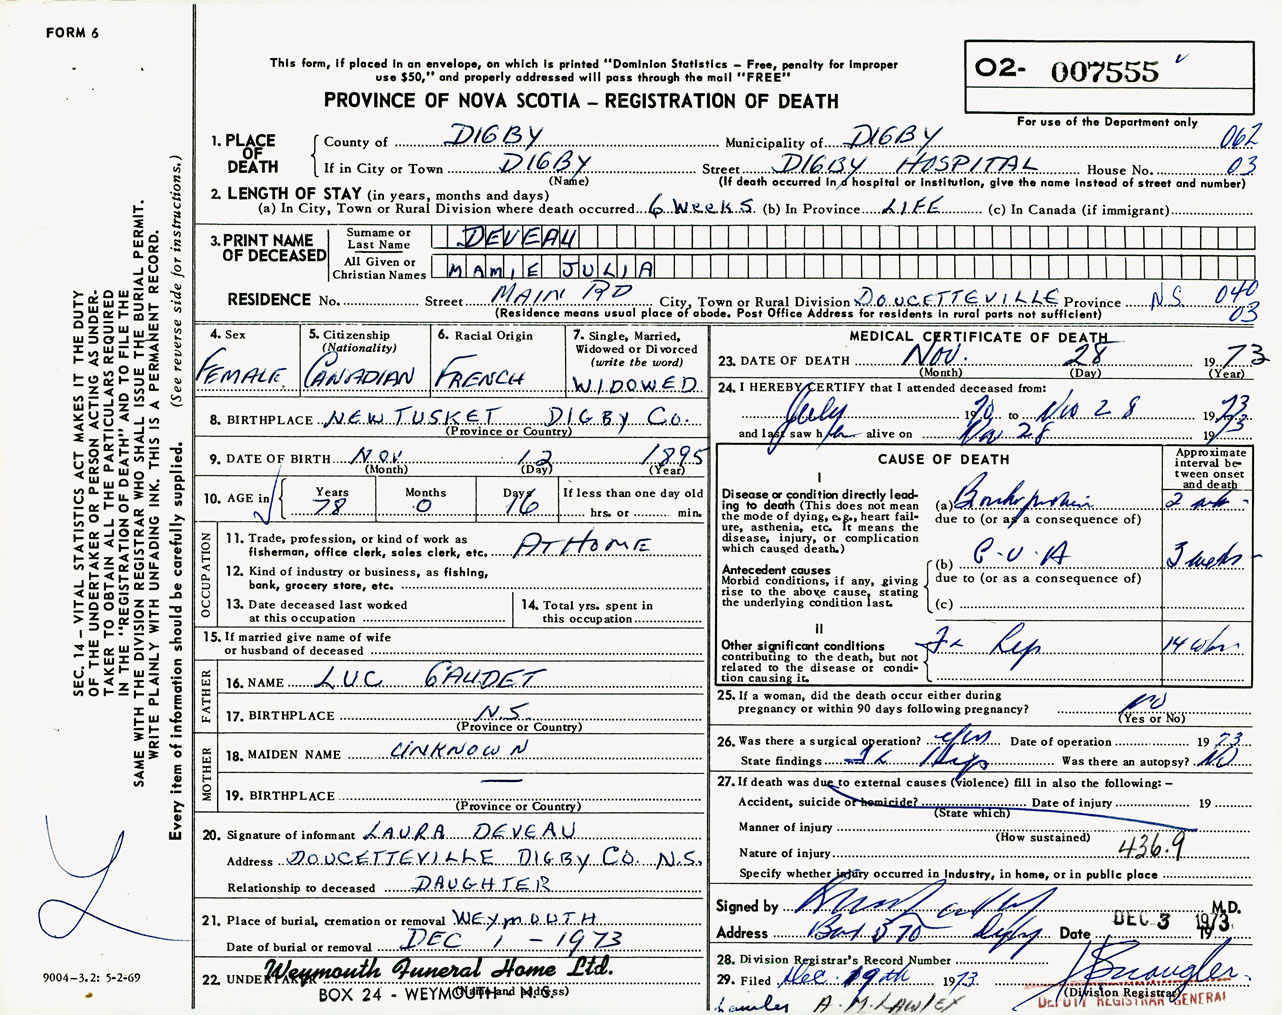 FORM 6
This form, if placed in an envelope, on which is printed "Dominion Statistics – Free, penalty for improper
use $50," and properly addressed will pass through the mail "FREE"
PROVINCE OF NOVA SCOTIA – REGISTRATION OF DEATH
02- 007555
For use of the Department only
1. PLACE OF DEATH
County of DIGBY Municipality of DIGBY 062
If in City or Town DIGBY Street DIGBY HOSPITAL House No. 03
(Name) (If death occurred in a hospital or institution, give the name instead of street and number)
2. LENGTH OF STAY (in years, months and days)
(a) In City, Town or Rural Division where death occurred 6 WEEKS (b) In Province LIFE (c) In Canada (if immigrant)
3. PRINT NAME OF DECEASED
Surname or Last Name DEVEAU
All Given or Christian Names MAMIE JULIA
RESIDENCE No. Street MAIN RD City, Town or Rural Division DOUCETTEVILLE Province N.S. 040
(Residence means usual place of abode. Post Office Address for residents in rural parts not sufficient) 03
4. Sex
FEMALE
5. Citizenship
(Nationality)
CANADIAN
6. Racial Origin
FRENCH
7. Single, Married,
Widowed or Divorced
(write the word)
WIDOWED
8. BIRTHPLACE NEW TUSKET DIGBY CO.
(Province or Country)
9. DATE OF BIRTH NOV 12 1895
(Month) (Day) (Year)
10. AGE in
Years Months Days If less than one day old
78 0 16 hrs. or min.
OCCUPATION
11. Trade, profession, or kind of work as
fisherman, office clerk, sales clerk, etc. AT HOME
12. Kind of industry or business, as fishing,
bank, grocery store, etc.
13. Date deceased last worked
at this occupation
14. Total yrs. spent in
this occupation
15. If married give name of wife
or husband of deceased
FATHER
16. NAME LUC GAUDET
17. BIRTHPLACE N.S.
(Province or Country)
MOTHER
18. MAIDEN NAME UNKNOWN
19. BIRTHPLACE —
(Province or Country)
20. Signature of informant LAURA DEVEAU
Address DOUCETTEVILLE DIGBY CO. N.S.
Relationship to deceased DAUGHTER
21. Place of burial, cremation or removal WEYMOUTH
Date of burial or removal DEC 1 - 1973
22. UNDERTAKER Weymouth Funeral Home Ltd.
(Name and address)
BOX 24 - WEYMOUTH N.S.
MEDICAL CERTIFICATE OF DEATH
23. DATE OF DEATH NOV. 28 1973
(Month) (Day) (Year)
24. I HEREBY CERTIFY that I attended deceased from:
July 1970 to Nov 28 1973
and last saw her alive on Nov 28 1973
CAUSE OF DEATH
Approximate
interval be-
tween onset
and death
I
Disease or condition directly lead-
ing to death (This does not mean
the mode of dying, e.g., heart fail-
ure, asthenia, etc. It means the
disease, injury, or complication
which caused death.)
(a)
due to (or as a consequence of)
Antecedent causes
Morbid conditions, if any, giving
rise to the above cause, stating
the underlying condition last.
(b) C.V.A 3 weeks
due to (or as a consequence of)
(c)
II
Other significant conditions
contributing to the death, but not
related to the disease or condi-
tion causing it.
25. If a woman, did the death occur either during
pregnancy or within 90 days following pregnancy? NO
(Yes or No)
26. Was there a surgical operation? yes Date of operation 1973
State findings Was there an autopsy? NO
27. If death was due to external causes (violence) fill in also the following: –
Accident, suicide or homicide? Date of injury 19
(State which)
Manner of injury
(How sustained)
Nature of injury 436.9
Specify whether injury occurred in industry, in home, or in public place
Signed by M.D.
Address Box 370 Digby Date DEC 3 1973
28. Division Registrar's Record Number
29. Filed Dec. 19th 1973
(Division Registrar)
DEPUTY REGISTRAR GENERAL
A. M. LAWLEY
SEC. 14 – VITAL STATISTICS ACT MAKES IT THE DUTY
OF THE UNDERTAKER OR PERSON ACTING AS UNDER-
TAKER TO OBTAIN ALL THE PARTICULARS REQUIRED
IN THE "REGISTRATION OF DEATH" AND TO FILE THE
SAME WITH THE DIVISION REGISTRAR WHO SHALL ISSUE THE BURIAL PERMIT.
WRITE PLAINLY WITH UNFADING INK. THIS IS A PERMANENT RECORD.
Every item of information should be carefully supplied. (See reverse side for instructions.)
9004-3.2: 5-2-69